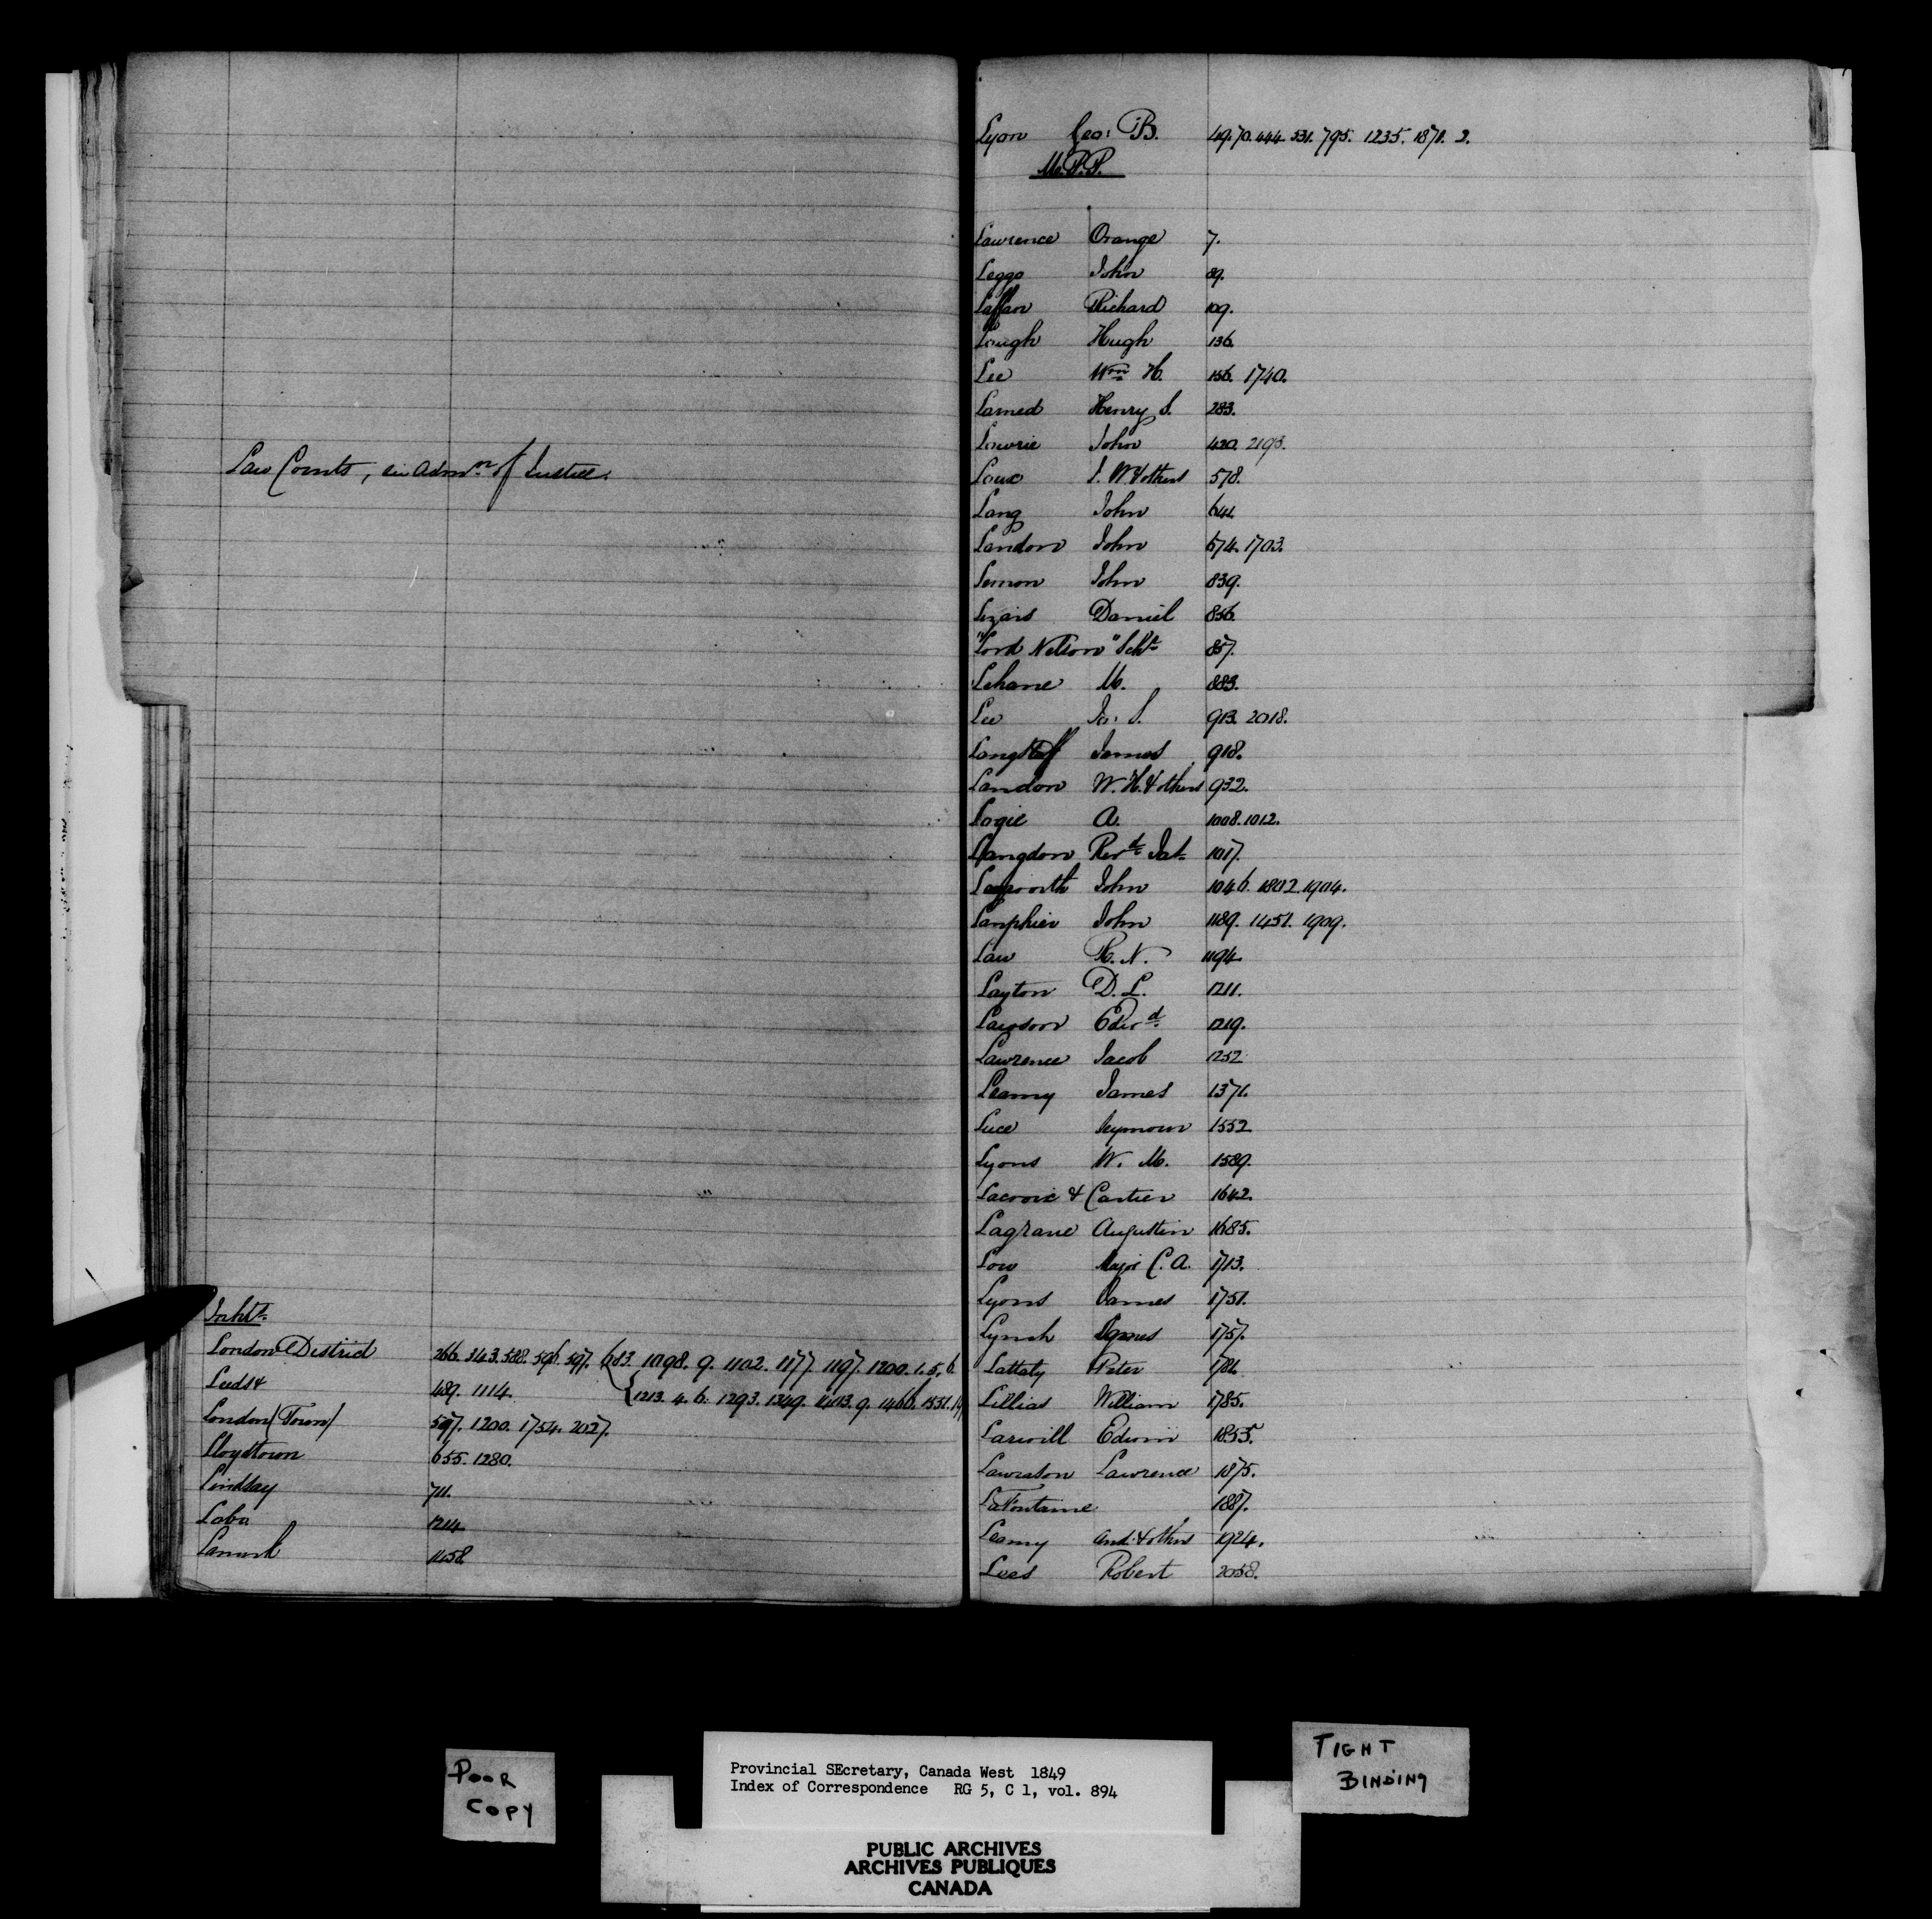 Law Courts, in Admn. of Justice.
Inhts.
London District 266. 343. 588. 596. 597. 683. 1098. 9. 1102. 1177. 1197. 1200. 1. 5. 6
{1213. 4. 6. 1293. 1349. 1403. 9. 1466. 1531.
Leeds & 489. 1114.
London (Town) 597. 1200. 1754. 2027.
Lloydtown 655. 1280.
Lindsay 711.
Lobo 1214
Lanark 1458
Lyon Geo: B. 49. 70. 444. 531. 795. 1235. 1871. 2.
M.P.P.
Lawrence Orange 7.
Leggo John 89.
Laffan Richard 109.
Lough Hugh 136.
Lee Wm H. 156. 1740.
Larned Henry S. 283.
Lowrie John 420. 2193.
Loux J. W. & others 578.
Lang John 641.
Landon John 674. 1703.
Lemon John 839.
Lizars Daniel 856.
"Lord Nelson" Schr 857.
Lehane M. 883.
Lee Jo: S. 913. 2018.
Langstaff James 918.
Landon W. H. & others 932.
Logie A. 1008. 1012.
Langdon Revd. 1017.
Longworth John 1046. 1802. 1904.
Lanphier John 1189. 1451. 1909.
Law R. N. 1194.
Layton D. L. 1211.
Lawson Edwd. 1219.
Lawrence Jacob 1252
Leamy James 1371.
Luce Seymour 1552
Lyons W. M. 1589.
Lacroix & Cartier 1642.
Lagrave Augustin 1685.
Low Major C. A. 1713.
Lyons James 1751.
Lynch James 1757.
Lattaty Peter 1781.
Lillias William 1785.
Larwill Edwin 1855.
Lawrason Lawrence 1875.
LaFontaine 1887.
Leamy And: & others 1924.
Lees Robert 2058.
POOR
COPY
Provincial SEcretary, Canada West 1849
Index of Correspondence RG 5, C 1, vol. 894
TIGHT
BINDING
PUBLIC ARCHIVES
ARCHIVES PUBLIQUES
CANADA